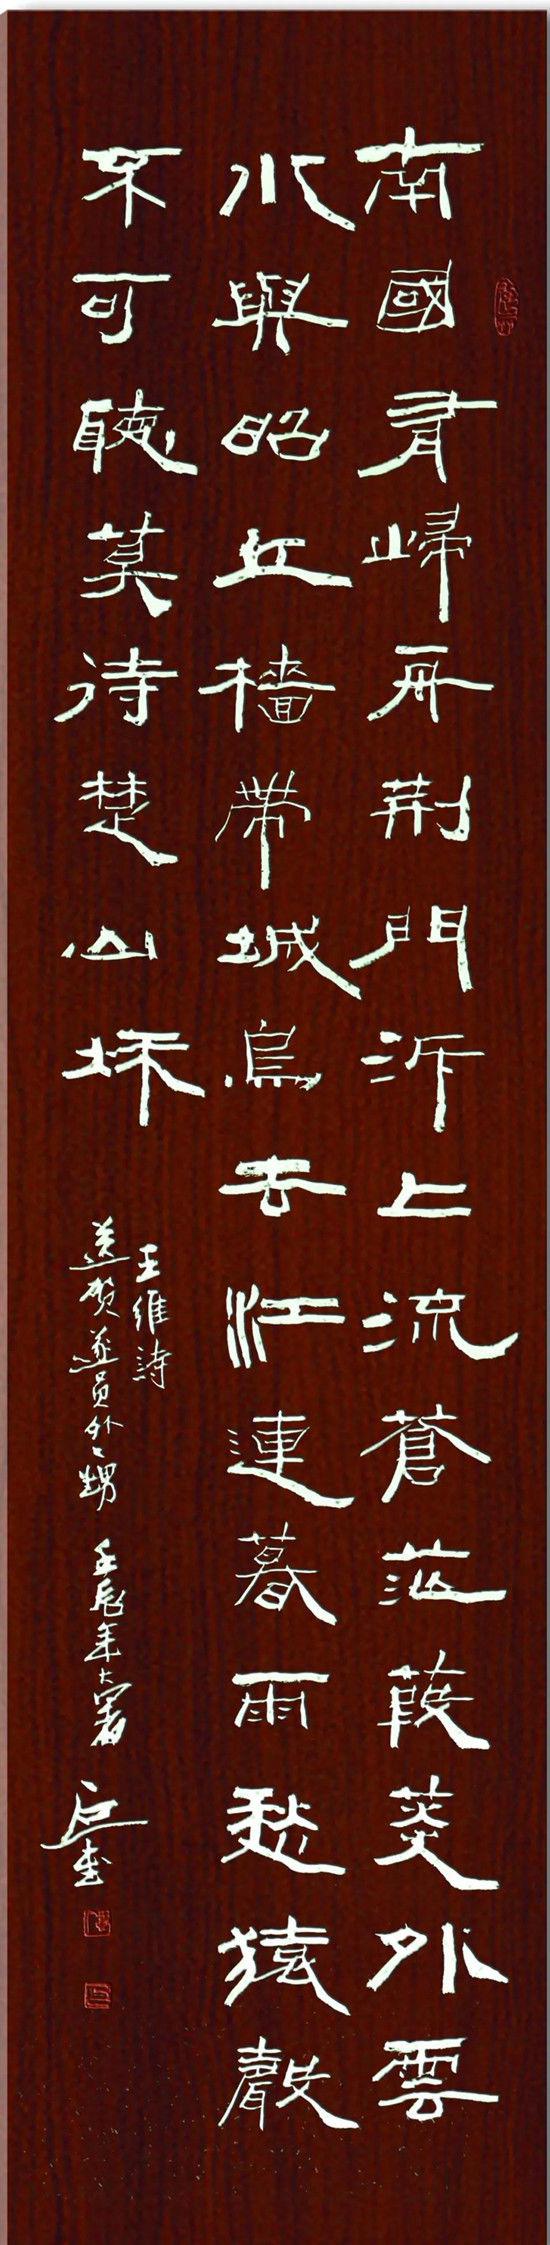 南國有歸舟荊門泝上流蒼茫葭菼外雲
水與昭丘檣帶城烏去江連暮雨愁猿聲
不可聽莫待楚山秋
王維詩
送賀遂員外々甥 壬辰年大暑